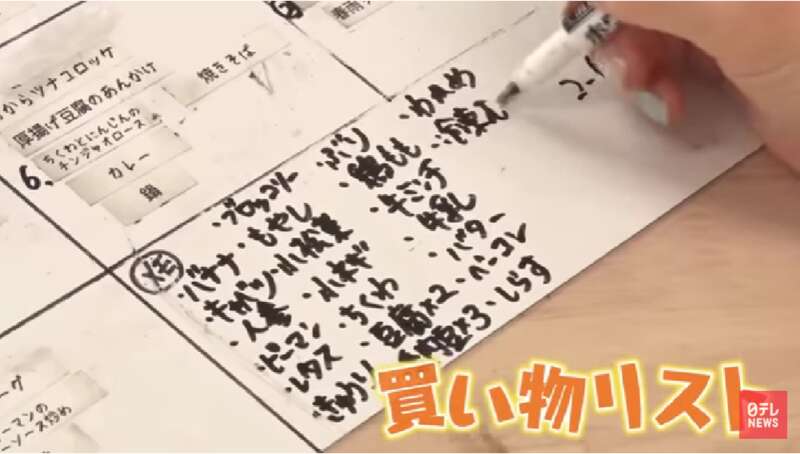 からツナコロッケ
厚揚げ豆腐のあんかけ
ちくわとにんじんの
チンジャオロース
カレー
鍋
焼きそば
春雨
6.
・バナナ
・キャベツ
・人参
・ピーマン
・レタス
・きゅうり
・ブロッコリー
・もやし
・小松菜
・小ネギ
・ちくわ
・豆腐×2
×3
・パン
・鶏もも
・牛ミンチ
・牛乳
・バター
・ベーコン
・しらす
・わかめ
・冷凍
ーグ
ーマンの
ーソース炒め
買い物リスト
日テレ
NEWS